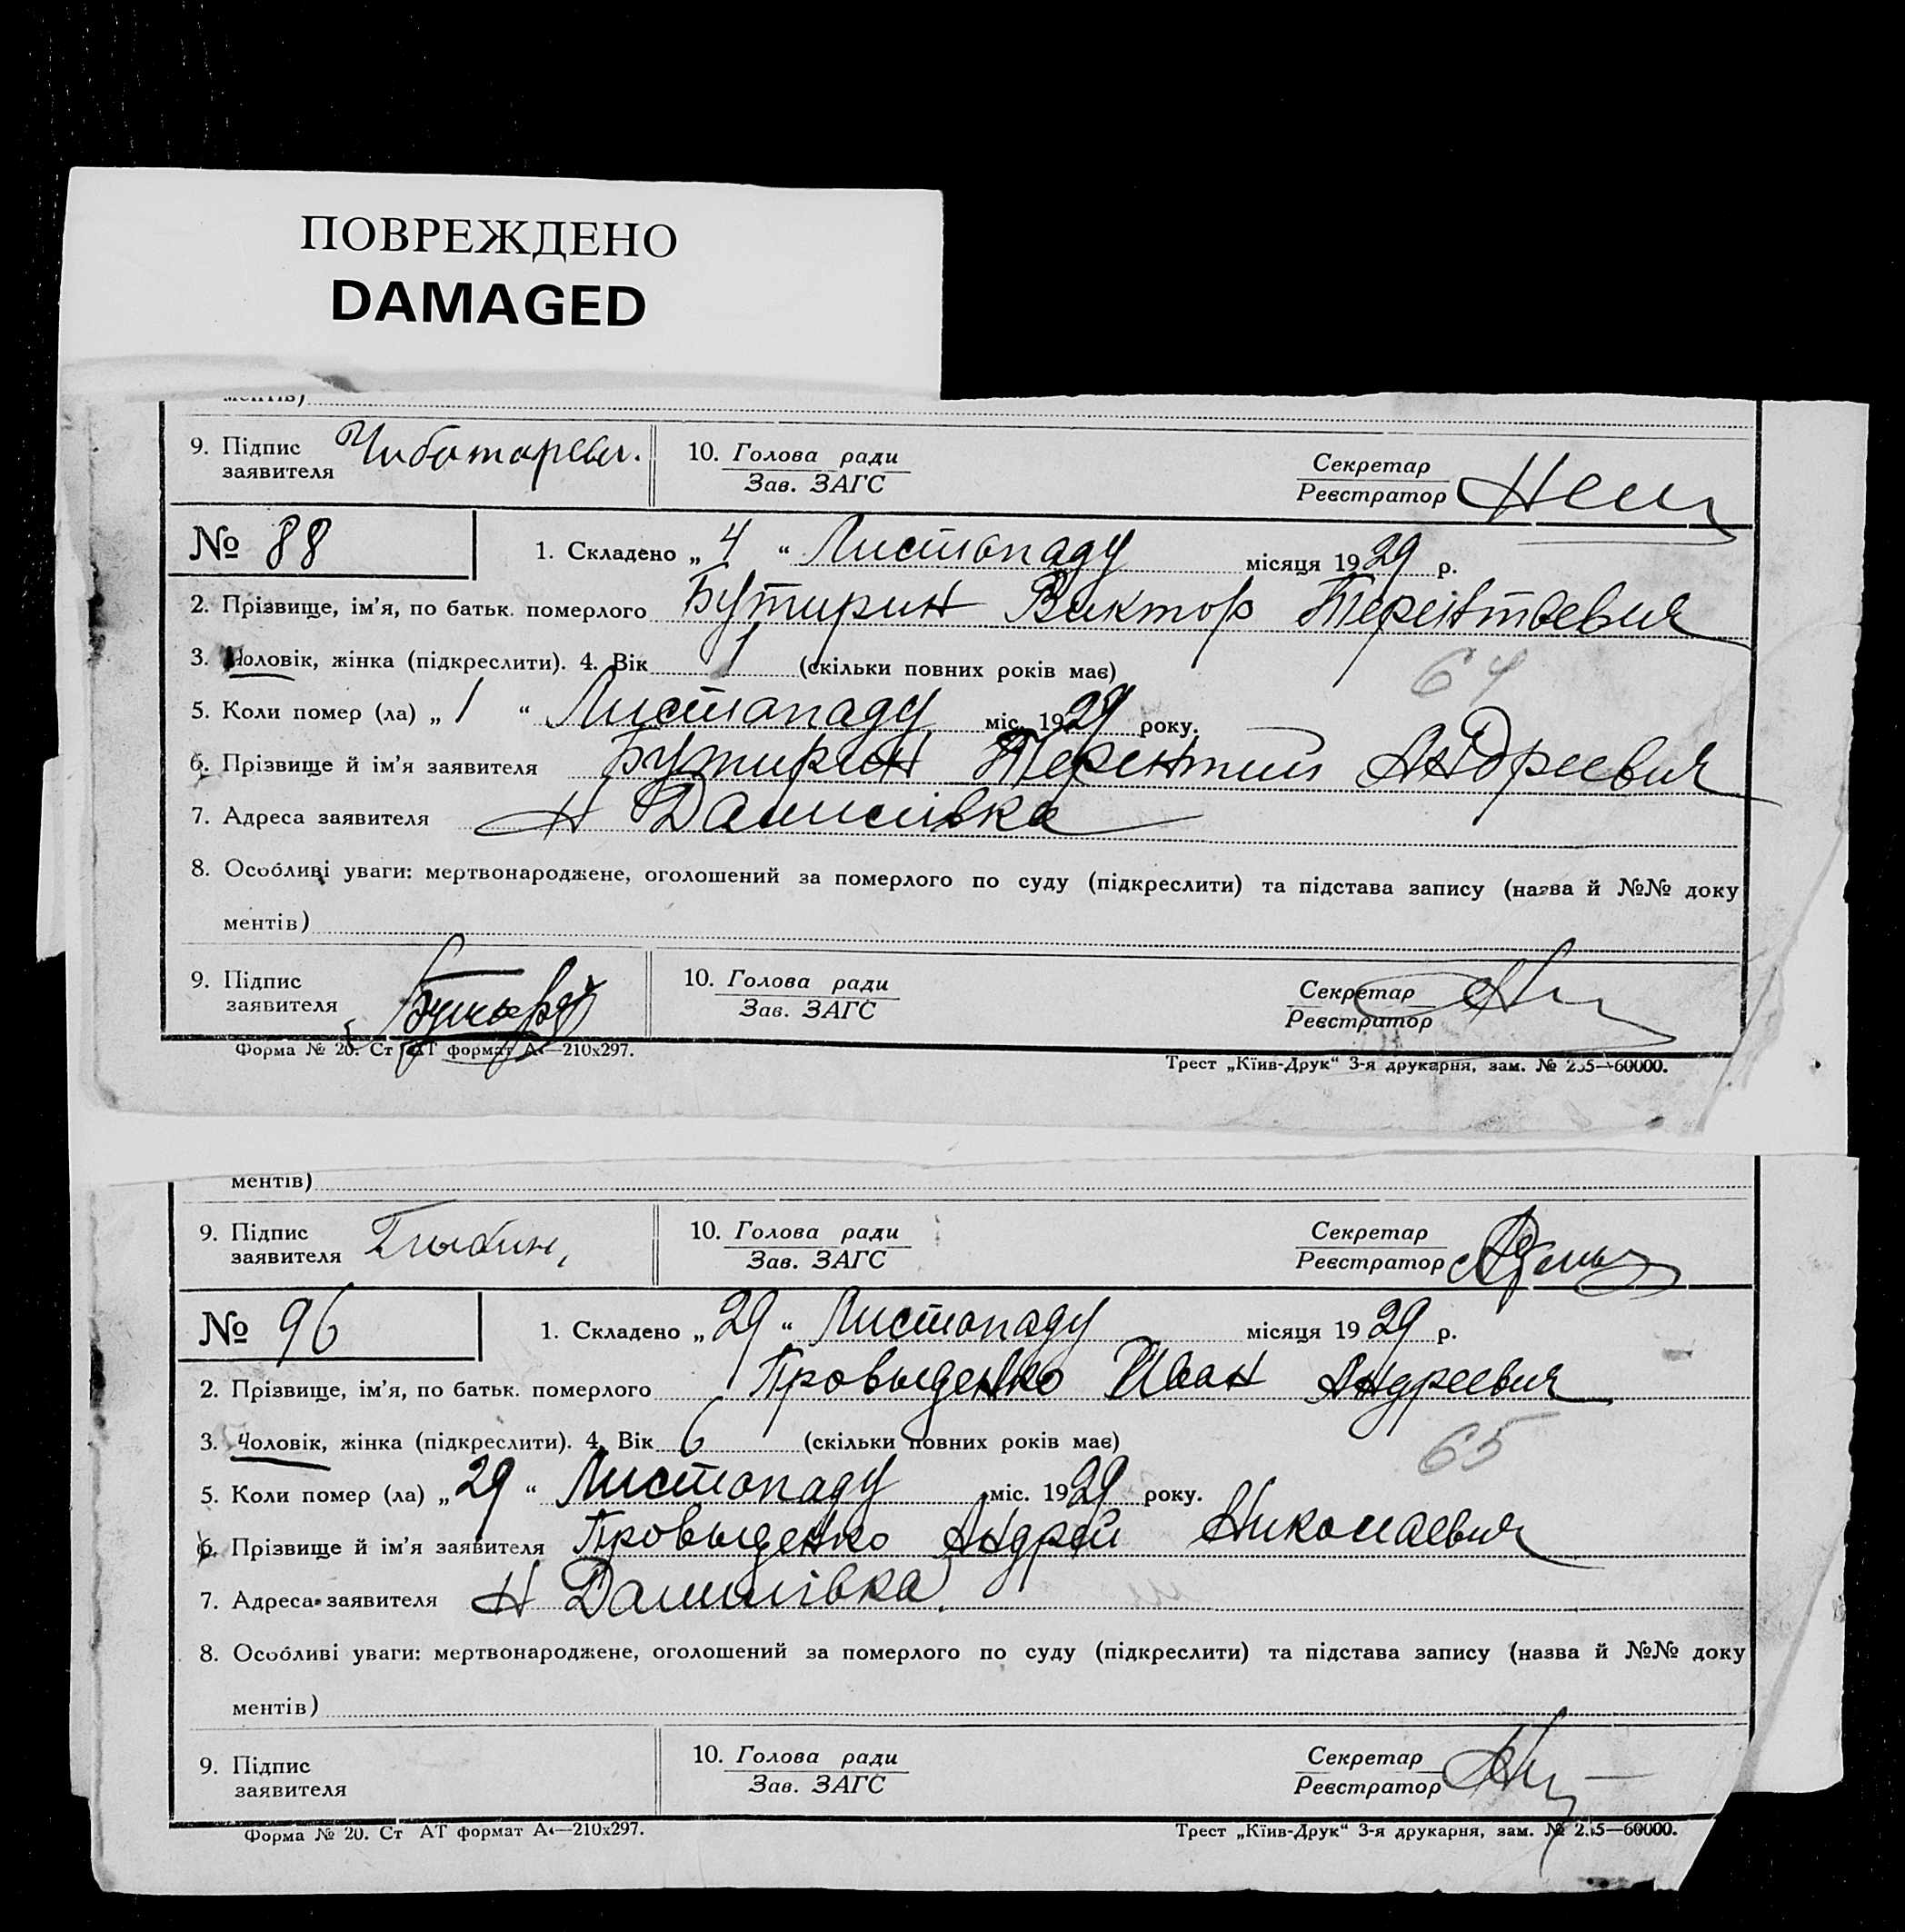 ПОВРЕЖДЕНО
DAMAGED
ментів)
9. Підпис заявителя Чиботарева. 10. Голова ради Зав. ЗАГС Секретар Реєстратор
№ 88 1. Складено „4“ Листопаду місяця 1929 р.
2. Прізвище, ім’я, по батьк. померлого Бутирин Виктор Терентьевич
3. Чоловік, жінка (підкреслити). 4. Вік 1 (скільки повних років має)
64
5. Коли помер (ла) „1“ Листопаду міс. 1929 року.
6. Прізвище й ім’я заявителя Бутирин Терентий Андреевич
7. Адреса заявителя Н Данилівка
8. Особливі уваги: мертвонароджене, оголошений за померлого по суду (підкреслити) та підстава запису (назва й №№ доку
ментів)
9. Підпис заявителя 10. Голова ради Зав. ЗАГС Секретар Реєстратор
Форма № 20. Ст АТ формат А4—210x297. Трест „Київ-Друк“ 3-я друкарня, зам. № 235—60000.
ментів)
9. Підпис заявителя 10. Голова ради Зав. ЗАГС Секретар Реєстратор
№ 96 1. Складено „29“ Листопаду місяця 1929 р.
2. Прізвище, ім’я, по батьк. померлого Провыденко Иван Андреевич
3. Чоловік, жінка (підкреслити). 4. Вік 6 (скільки повних років має)
65
5. Коли помер (ла) „29“ Листопаду міс. 1929 року.
6. Прізвище й ім’я заявителя Провыденко Андрей Николаевич
7. Адреса заявителя Н Данилівка.
8. Особливі уваги: мертвонароджене, оголошений за померлого по суду (підкреслити) та підстава запису (назва й №№ доку
ментів)
9. Підпис заявителя 10. Голова ради Зав. ЗАГС Секретар Реєстратор
Форма № 20. Ст АТ формат А4—210x297. Трест „Київ-Друк“ 3-я друкарня, зам. № 235—60000.